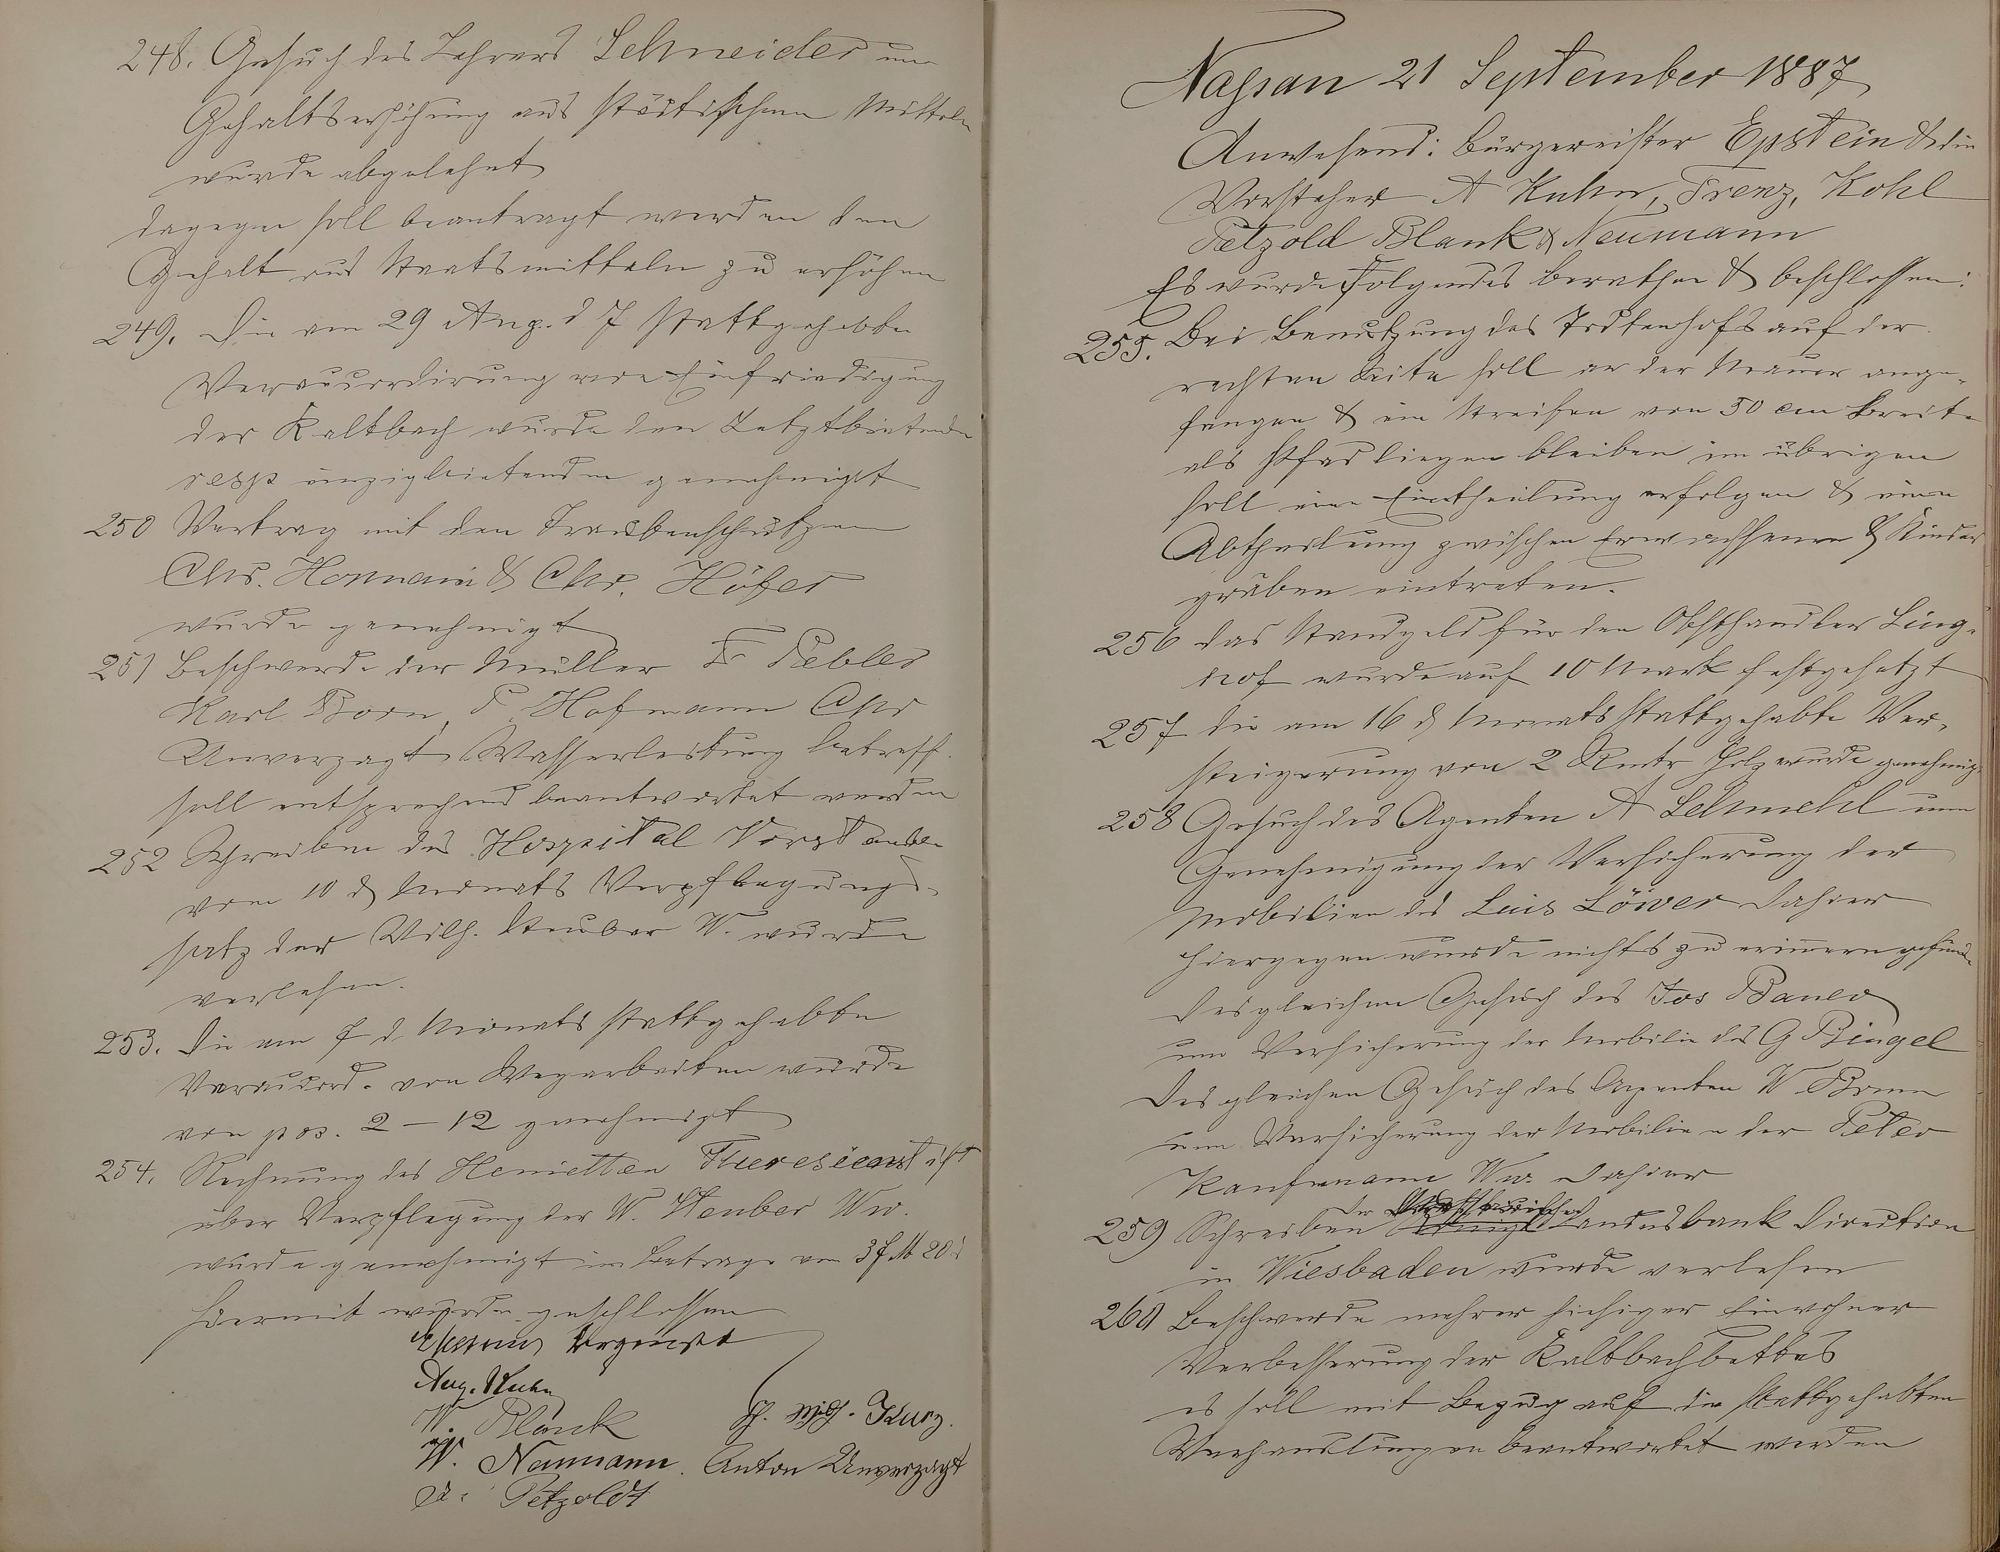 248. Gesuch des Lehrers Schneider um
Gehaltserhöhung aus städtischen Mitteln
wurde abgelehnt
dagegen soll beantragt werden den
Gehalt aus Staatsmitteln zu erhöhen
249. Die am 29 Aug. d J stattgehabte
Veraccordirung von Einfriedigung
der Kaltbach wurde den Letztbietenden
resp einzigbietenden genehmigt
250 Vertrag mit den Traubenschützen
Chr. Hormann & Chr. Höfer
wurde genehmigt
251 Beschwerde der Müller F Pebler
Karl Born, P. Hofmann Chr
Unverzagt Wasserleitung betreff.
soll entsprechend beantwortet werden
252 Schreiben des Hospital Vorstandes
vom 10 d Monats Verpflegungs-
satz der Wilh. Steuber W. wurde
verlesen.
253. Die am 7 d. Monats stattgehabte
Veraccord. von Wegarbeiten wurde
von pos. 2 – 12 genehmigt
254. Rechnung des Henrietten Theresienstift
über Verpflegung der W. Steuber Ww.
wurde genehmigt im Betrage von 37 M 20
Hiermit wurde geschlossen
Aug. Kuhn
W. Blank
W. Kurz.
W. Neumann. Anton Unverzagt
Petzoldt
Nassau 21 September 1887
Anwesend: Bürgermeister Epstein & die
Vorsteher A Kuhn, Trenz, Kohl
Petzold Blank & Neumann
Es wurde Folgendes berathen & beschlossen:
255. Bei Benutzung des Todtenhofs auf der
rechten Seite soll an der Mauer ange-
fangen & ein Streifen von 50 cm Breite
als Pfad liegen bleiben im übrigen
soll eine Eintheilung erfolgen & eine
Abtheilung zwischen Erwachsenen & Kinder
gräben eintreten.
256 das Standgeld für den Obsthändler Ling-
nof wurde auf 10 Mark festgesetzt
257 die am 16 d Monats stattgehabte Ver-
steigerung von 2 Rmtr Holz wurde genehmigt
258 Gesuch des Agenten A Schmehl um
Genehmigung der Versicherung der
Mobilien des Luis Löwer dahier
hiergegen wurde nichts zu erinnern gefunden
Desgleichen Gesuch des Jos Bauer
um Versicherung der Mobilien des G Bingel
Desgleichen Gesuch des Agenten W Bruun
um Versicherung der Mobilien der Peter
Kaufmann Ww. dahier
259 Schreiben der Landesbank Direction
in Wiesbaden wurde verlesen
260 Beschwerde mehrer hiesiger Einwohner
Verbesserung der Kaltbachbettes
es soll mit Bezug auf die stattgehabten
Verhandlungen beantwortet werden